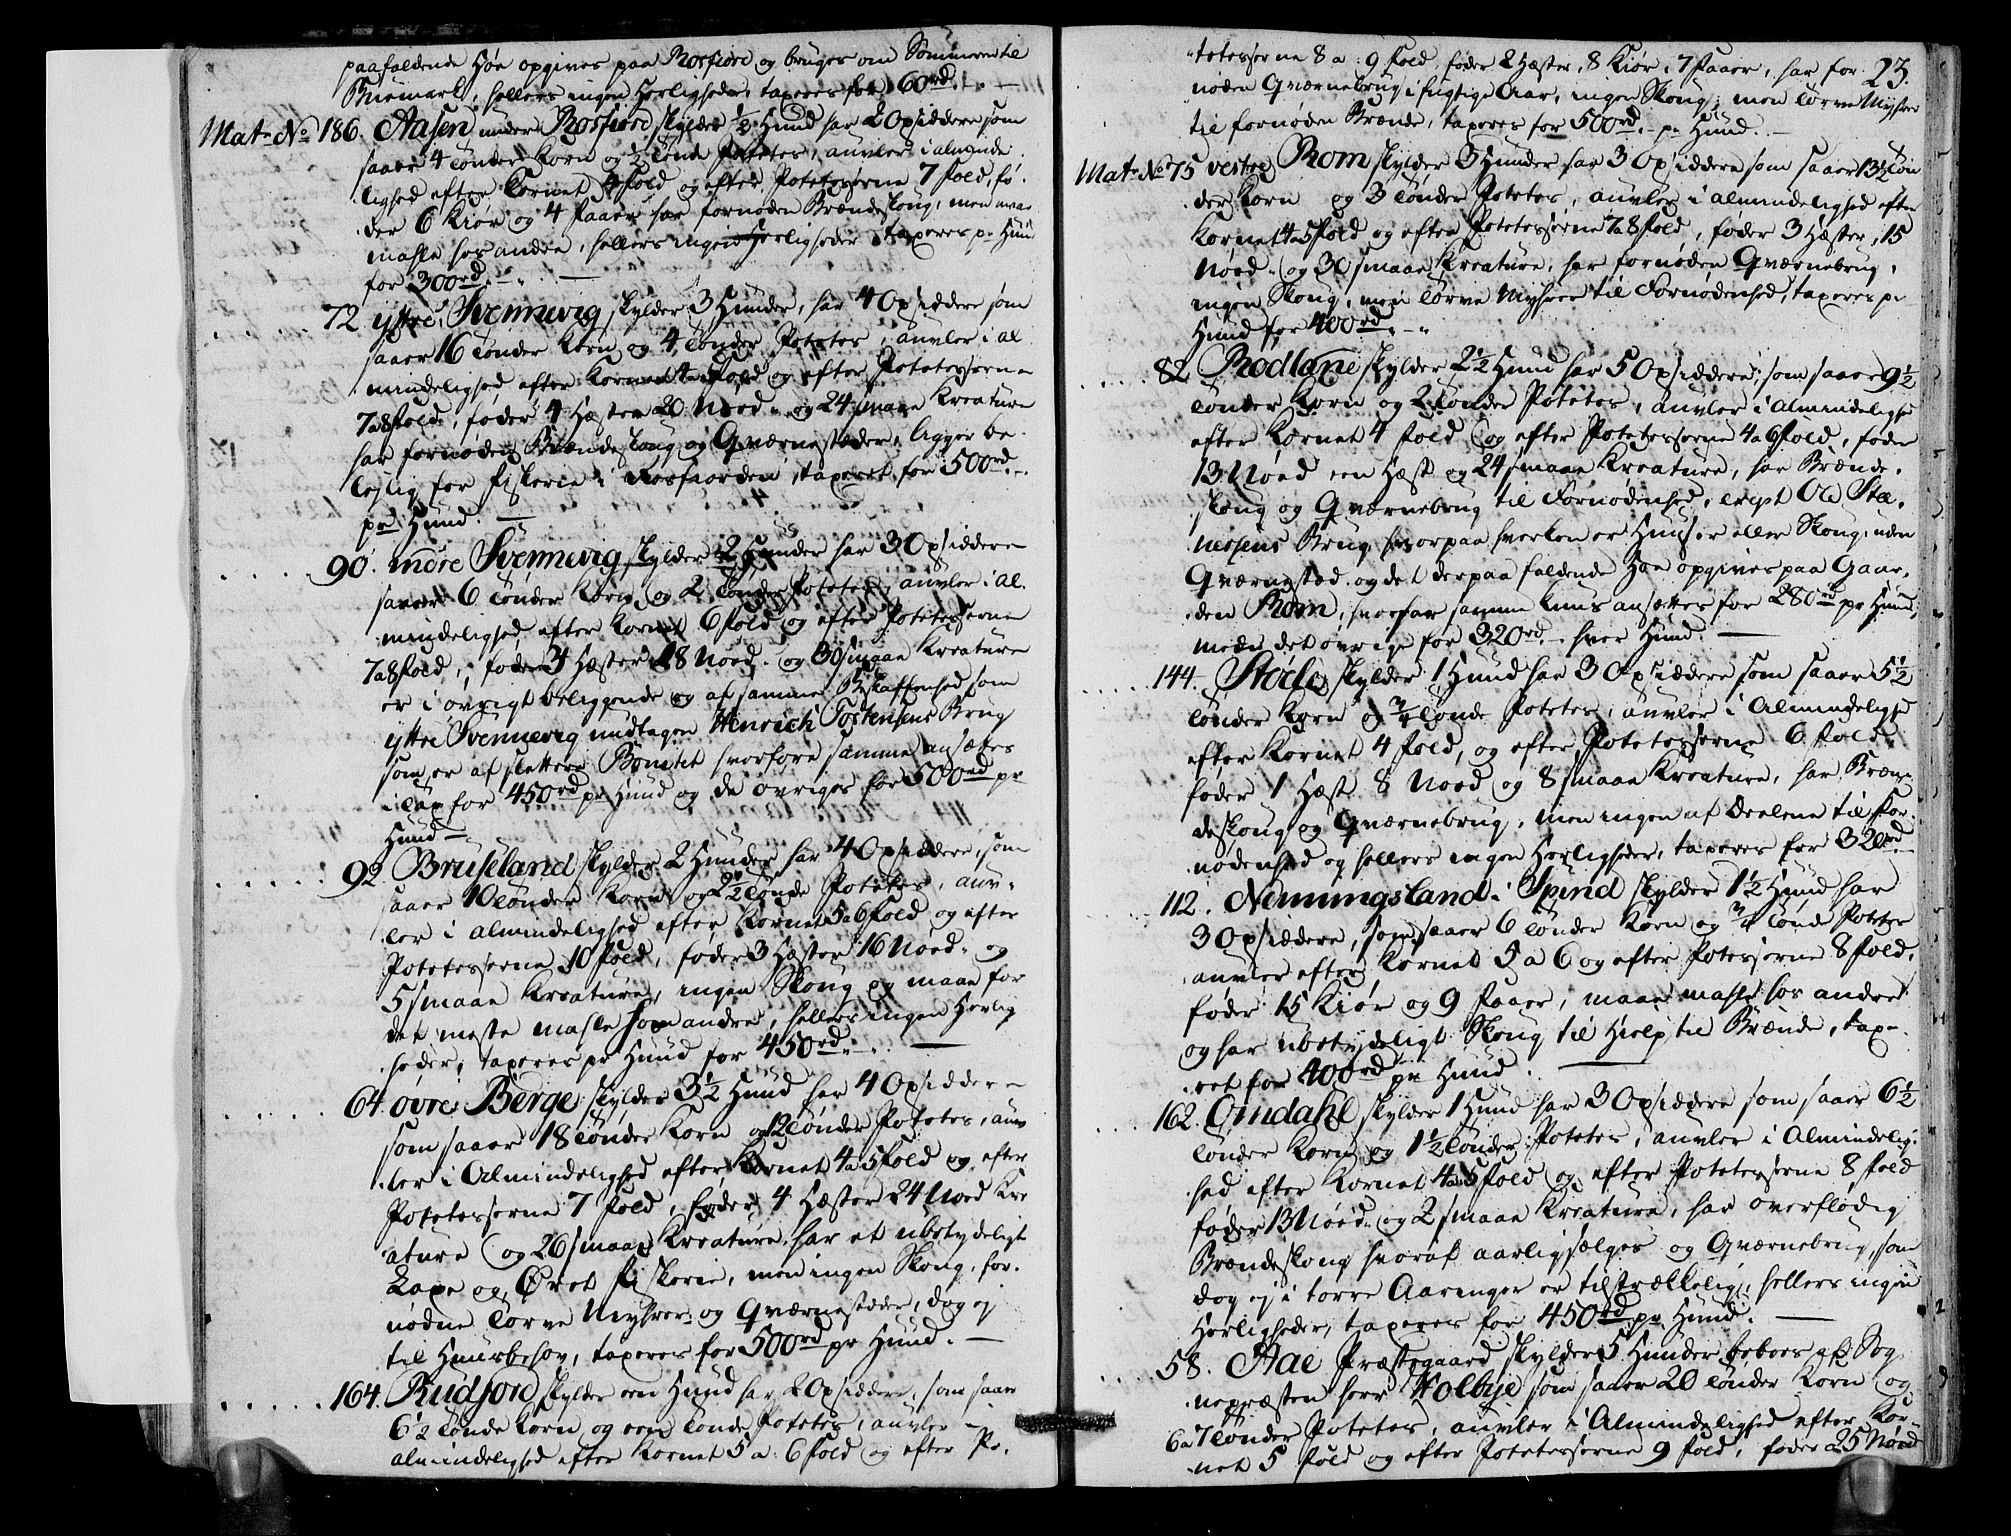 paafaldende Høe opgives paa Rosfiord og bruges om Sommeren til
Buemark, hellers ingen Herligheder, taxeres for 60rd.
Mat. No 186. Aasen under Rosfiord skylder 1/2 Hund har 2 Opsiddere som
saaer 4 Tønder Korn og 1/2 Tønde Potetes, auvler i alminde
lighed efter Kornet 4 fold og efter Potetesserne 7 fold, fø-
der 6 Kiør og 4 Faaer har fornøden Brændeskoug, men maae
mahle hos andre, hellers ingen Herligheder taxeres pr Hund
for 300rd.
72 yttre Svennevig skylder 3 Hunder, har 4 Opsiddere som
saaer 16 Tønder Korn og 4 Tønder Potetes, auvler i al
mindelighed efter Kornet 4 a 5 fold og efter Potetesserne
7 a 8 fold, føder 4 Hæster 20 Nøed- og 24 smaae Kreature
har fornøden Brændeskoug og Qværnestæder, ligger be-
lejlig for fiskerie i Rosfiorden, taxeret for 500rd
pr Hund.
90. indre Svennevig skylder 2 Hunder har 3 Opsiddere
saaer 6 Tønder Korn og 2 Tønder Potetes, auvler i al-
mindelighed efter Kornet 6 fold og efter Potetesserne
7 a 8 fold, føder 4 Hæster 18 Nøed- og 30 smaae Kreature
er i øvrigt beliggende og af samme Beskaffenhed som
yttre Svennevig undtagen Henrich Tostensens Brug
som er af slettere Bonitet hvorfore samme ansættes
i Tax for 450rd pr Hund og de øvriges for 500rd pr
Hund
92 Bruseland skylder 2 Hunder har 4 Opsiddere, som
saaer 10 Tønder Korn og 2 1/2 Tønde Potetes, auv-
ler i almindelighed efter Kornet 5 a 6 fold og efter
Potetesserne 10 fold, føder 3 Hæster 16 Nøed- og
5 smaae Kreature, ingen Skoug og maae for
det meste mahle hos andre, hellers ingen Herlig
heder, taxeres pr Hund for 450rd.
64. øvre Berge skylder 3 1/2 Hund har 4 Opsiddere
som saaer 18 Tønder Korn og 2 Tønder Potetes, auv
ler i Almindelighed efter Kornet 4 a 5 fold og efter
Potetesserne 7 fold, føder 4 Hæster 24 Nøed Kre
ature og 26 smaae Kreature, har et ubetydeligt
Laxe og Øret fiskerie, men ingen Skoug, for-
nødne Torve Myhrer og Qværnestæder, dog ej
til Huusbehov, taxeres for 500rd pr Hund.
164. Rudjord skylder een Hund har 2 Opsiddere, som saaer
6 1/2 Tønde Korn og een Tønde Potetes, auvler i
almindelighed efter Kornet 5 a 6 fold og efter Po-
23.
tetesserne 8 a 9 fold, føder 2 Hæster, 8 Kiør, 7 Faaer, har for-
nøden Qværnebrug i fugtige Aar, ingen Skoug, men Torve Myhrer
til fornøden Brænde, taxeres for 500rd. pr Hund.
Mat. No 75 vestre Rom skylder 3 Hunder har 3 Opsiddere som saaer 13 1/2 Tøn
der Korn og 3 Tønder Potetes, auvler i almindelighed efter
Kornet 4 a 5 fold og efter Potetesserne 7 a 8 fold, føder 3 Hæster, 15
Nøed- og 30 smaae Kreature, har fornøden Qværnebrug,
ingen Skoug, men Torve Myhrer til Fornødenhed, taxeres pr
Hund for 400rd.
82 Rødland skylder 2 1/2 Hund har 5 Opsiddere, som saaer 9 1/2
Tønder Korn og 2 Tønder Potetes, auvler i Almindelighed
efter Kornet 4 fold og efter Potetesserne 4 a 6 fold, føder
13 Nøed een Hæst og 24 smaae Kreature, har Brænde-
skoug og Qværnebrug til Fornødenhed, exept Ole
Brug, hvorpaa hverken er Huuser eller Skoug, uden
Qværnested og det derpaa faldende Høe opgives paa Gaar-
den Rom, hvorfor samme kuns ansættes for 280rd pr Hund,
medn det øvrige for 320rd. hver Hund.
144. Støle skylder 1 Hund har 3 Opsiddere som saaer 5 1/2
Tønder Korn og 3/4 Tønde Potetes, auvler i Almindelighed
efter Kornet 4 fold, og efter Potetesserne 6 fold
føder 1 Hæst 8 Nøed og 8 smaae Kreature, har Bræn-
deskoug og Qværnebrug, men ingen af Deelene til For-
nødenhed og hellers ingen Herligheder, taxeres for 320rd.
112. Nenningsland i Spind skylder 1 1/2 Hund har
3 Opsiddere, som saaer 6 Tønder Korn og 3/4 Tønde Potetes
auvler efter Kornet 5 a 6 og efter Potesserne 8 fold,
føder 15 Kiør og 9 Faaer, maae mahle hos andre
og har ubetydeligt Skoug til Hielp til Brænde, taxe-
ret for 400rd pr Hund.
162. Omdahl skylder 1 Hund har 3 Opsiddere som saaer 6 1/2
Tønder Korn og 1 1/2 Tønder Potetes, auvler i Almindelig-
hed efter Kornet 4 a 5 fold og efter Potetesserne 8 fold
føder 13 Nøed- og 2 smaae Kreature, har overflødig
Brændeskoug hvoraf aarlig sælges og Qværnebrug, som
dog ej i tørre Aaringer er tilstrækkelig, hellers ingen
Herligheder, taxeres for 450rd pr Hund.
58. Aae Præstegaard skylder 5 Hunder beboes af Sog
nepræsten herr Holbye som saaer 20 Tønder Korn og
6 a 7 Tønder Potetes, auvler i Almindelighed efter Kor-
net 5 fold og efter Potetesserne 9 fold, føder 25 Nøed